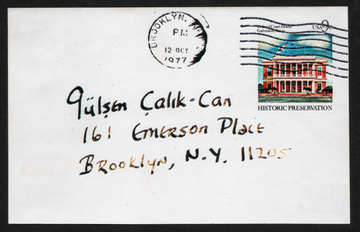 BROOKLYN, N.Y.
PM
12 OCT
1977
USA 9c
HISTORIC PRESERVATION
Gülşen Çalık-Can
161 Emerson Place
Brooklyn, N.Y. 11205